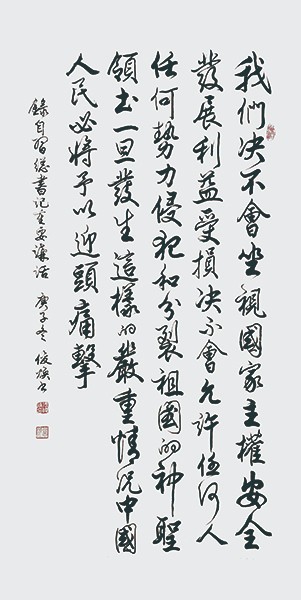 我們决不會坐視國家主權安全
發展利益受損决不會允許任何人
任何勢力侵犯和分裂祖國的神聖
領土一旦發生這樣的嚴重情況中國
人民必將予以迎頭痛擊
錄自習總書記重要講話 庚子冬 俊嶺書